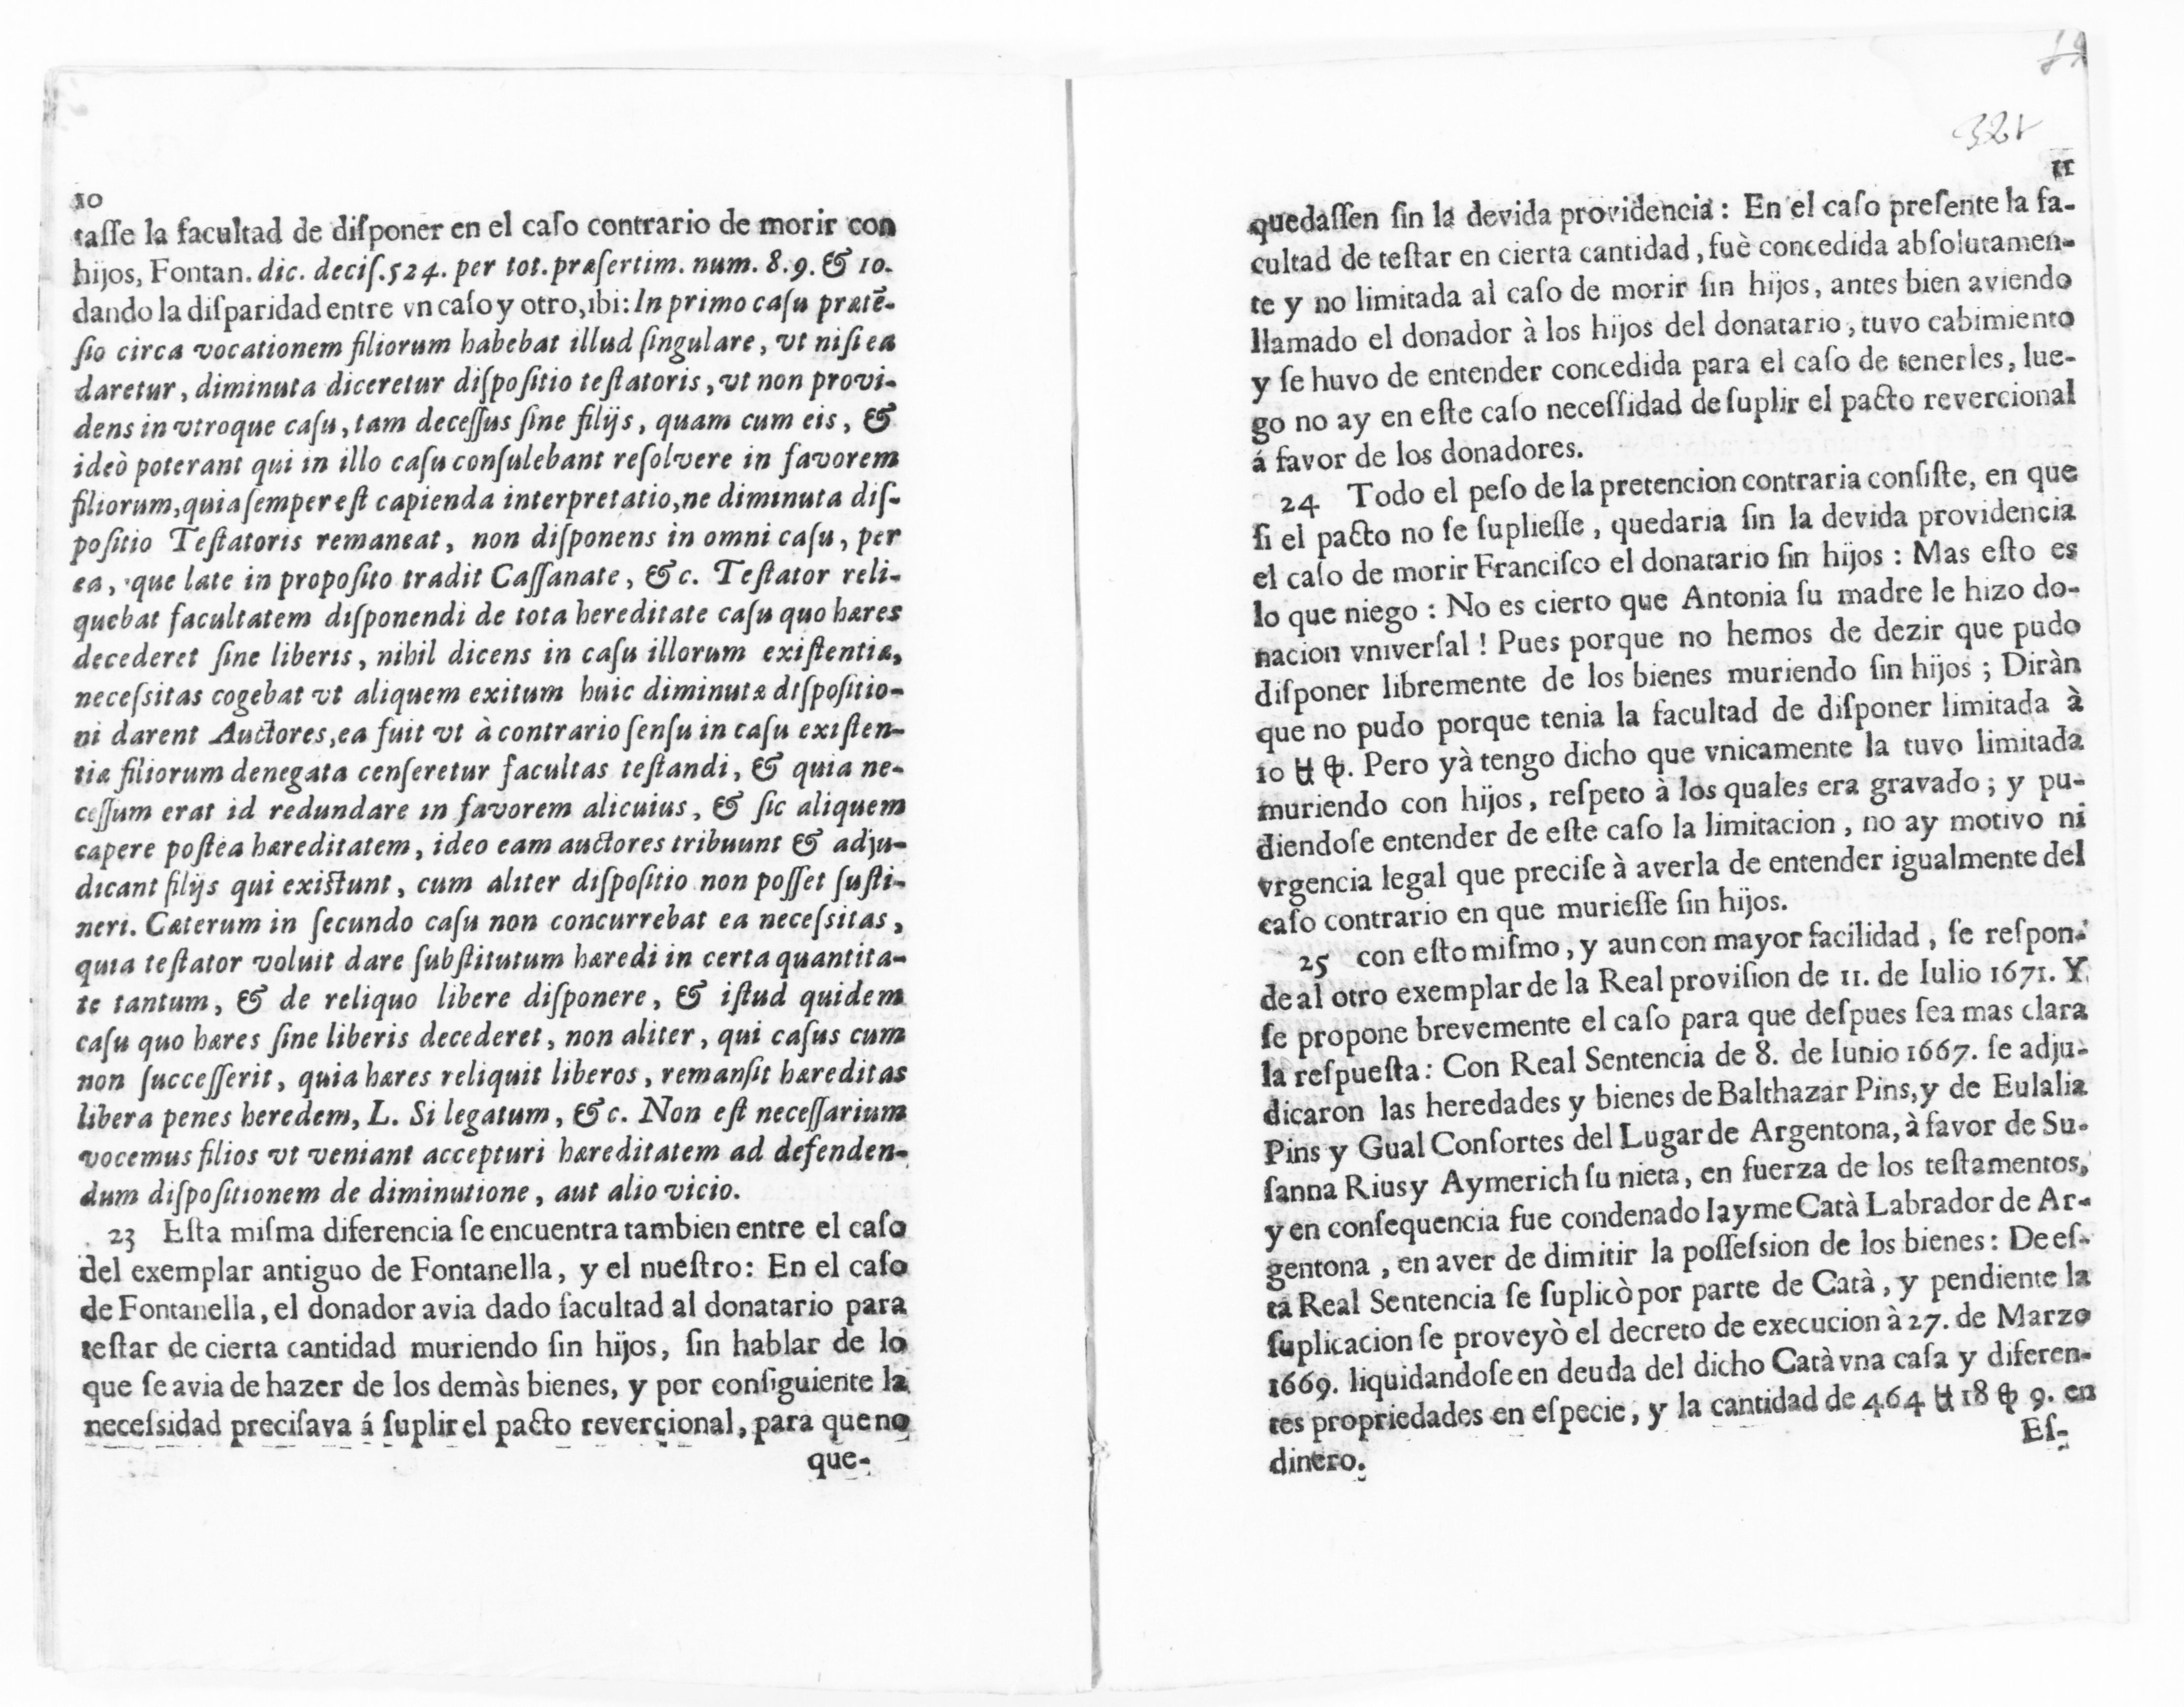 10
tasse la facultad de disponer en el caso contrario de morir con
hijos, Fontan. dic. decis.524. per tot. præsertim. num. 8.9. & 10.
dando la disparidad entre vn caso y otro, ibi: In primo casu prætē-
sio circa vocationem filiorum habebat illud singulare, vt nisi ea
daretur, diminuta diceretur dispositio testatoris, vt non provi-
dens in vtroque casu, tam decessus sine filijs, quam cum eis, &
ideò poterant qui in illo casu consulebant resolvere in favorem
filiorum, quia semper est capienda interpretatio, ne diminuta dis-
positio Testatoris remaneat, non disponens in omni casu, per
ea, que late in proposito tradit Cassanate, &c. Testator reli-
quebat facultatem disponendi de tota hereditate casu quo hæres
decederet sine liberis, nihil dicens in casu illorum existentiæ,
necessitas cogebat vt aliquem exitum huic diminutæ dispositio-
ni darent Auctores, ea fuit vt à contrario sensu in casu existen-
tiæ filiorum denegata censeretur facultas testandi, & quia ne-
cessum erat id redundare in favorem alicuius, & sic aliquem
capere postea hæreditatem, ideo eam auctores tribuunt & adju-
dicant filijs qui existunt, cum aliter dispositio non posset susti-
neri. Cæterum in secundo casu non concurrebat ea necessitas,
quia testator voluit dare substitutum hæredi in certa quantita-
te tantum, & de reliquo libere disponere, & istud quidem
casu quo hæres sine liberis decederet, non aliter, qui casus cum
non successerit, quia hæres reliquit liberos, remansit hæreditas
libera penes heredem, L. Si legatum, &c. Non est necessarium
vocemus filios vt veniant accepturi hæreditatem ad defenden-
dum dispositionem de diminutione, aut alio vicio.
23 Esta misma diferencia se encuentra tambien entre el caso
del exemplar antiguo de Fontanella, y el nuestro: En el caso
de Fontanella, el donador avia dado facultad al donatario para
testar de cierta cantidad muriendo sin hijos, sin hablar de lo
que se avia de hazer de los demàs bienes, y por consiguiente la
necessidad precisava á suplir el pacto revercional, para que no
que-
321
11
quedassen sin la devida providencia: En el caso presente la fa-
cultad de testar en cierta cantidad, fuè concedida absolutamen-
te y no limitada al caso de morir sin hijos, antes bien aviendo
llamado el donador à los hijos del donatario, tuvo cabimiento
y se huvo de entender concedida para el caso de tenerles, lue-
go no ay en este caso necessidad de suplir el pacto revercional
á favor de los donadores.
24 Todo el peso de la pretencion contraria consiste, en que
si el pacto no se supliesse, quedaria sin la devida providencia
el caso de morir Francisco el donatario sin hijos: Mas esto es
lo que niego: No es cierto que Antonia su madre le hizo do-
nacion vniversal! Pues porque no hemos de dezir que pudo
disponer libremente de los bienes muriendo sin hijos; Diràn
que no pudo porque tenia la facultad de disponer limitada à
10 ꟻ. Pero yà tengo dicho que vnicamente la tuvo limitada
muriendo con hijos, respeto à los quales era gravado; y pu-
diendose entender de este caso la limitacion, no ay motivo ni
vrgencia legal que precise à averla de entender igualmente del
caso contrario en que muriesse sin hijos.
25 con esto mismo, y aun con mayor facilidad, se respon-
de al otro exemplar de la Real provision de 11. de Iulio 1671. Y
se propone brevemente el caso para que despues sea mas clara
la respuesta: Con Real Sentencia de 8. de Iunio 1667. se adju-
dicaron las heredades y bienes de Balthazar Pins, y de Eulalia
Pins y Gual Consortes del Lugar de Argentona, à favor de Su-
sanna Rius y Aymerich su nieta, en fuerza de los testamentos,
y en consequencia fue condenado Iayme Catà Labrador de Ar-
gentona, en aver de dimitir la possession de los bienes: De es-
ta Real Sentencia se suplicò por parte de Catà, y pendiente la
suplicacion se proveyò el decreto de execucion à 27. de Marzo
1669. liquidandose en deuda del dicho Catà vna casa y diferen-
tes propriedades en especie, y la cantidad de 464 18 9. en
dinero.
Es-